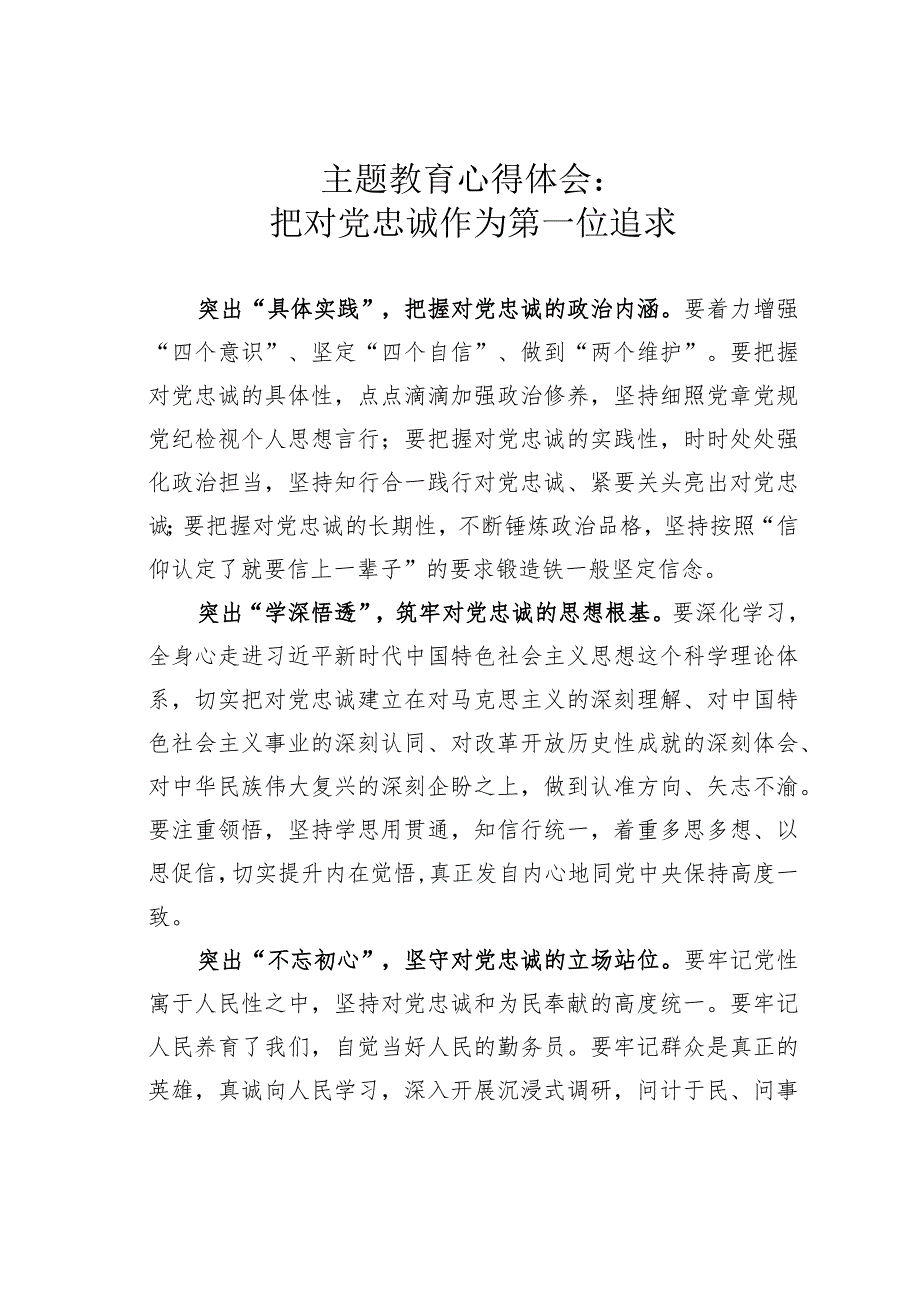 主题教育心得体会：
把对党忠诚作为第一位追求
突出“具体实践”，把握对党忠诚的政治内涵。要着力增强
“四个意识”、坚定“四个自信”、做到“两个维护”。要把握
对党忠诚的具体性，点点滴滴加强政治修养，坚持细照党章党规
党纪检视个人思想言行；要把握对党忠诚的实践性，时时处处强
化政治担当，坚持知行合一践行对党忠诚、紧要关头亮出对党忠
诚；要把握对党忠诚的长期性，不断锤炼政治品格，坚持按照“信
仰认定了就要信上一辈子”的要求锻造铁一般坚定信念。
突出“学深悟透”，筑牢对党忠诚的思想根基。要深化学习，
全身心走进习近平新时代中国特色社会主义思想这个科学理论体
系，切实把对党忠诚建立在对马克思主义的深刻理解、对中国特
色社会主义事业的深刻认同、对改革开放历史性成就的深刻体会、
对中华民族伟大复兴的深刻企盼之上，做到认准方向、矢志不渝。
要注重领悟，坚持学思用贯通，知信行统一，着重多思多想、以
思促信，切实提升内在觉悟，真正发自内心地同党中央保持高度一
致。
突出“不忘初心”，坚守对党忠诚的立场站位。要牢记党性
寓于人民性之中，坚持对党忠诚和为民奉献的高度统一。要牢记
人民养育了我们，自觉当好人民的勤务员。要牢记群众是真正的
英雄，真诚向人民学习，深入开展沉浸式调研，问计于民、问事